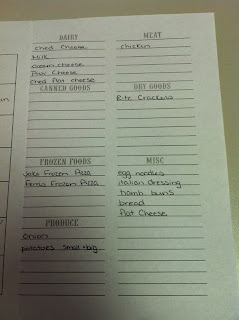 DAIRY
ched cheese
Milk
cream cheese
Ched flat cheese
CANNED GOODS
FROZEN FOODS
Jake Frozen Pizza
Frozen Pizza
PRODUCE
onion
potatoes small + big
MEAT
chicken
DRY GOODS
Ritz Crackers
MISC
egg noodles
italian dressing
bomb buns
bread
flat cheese